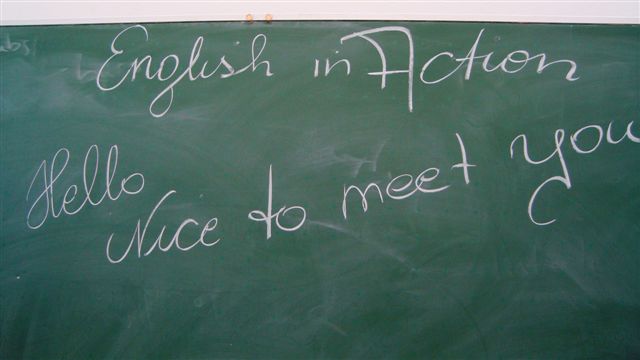 English in Action
Hello
Nice to meet you